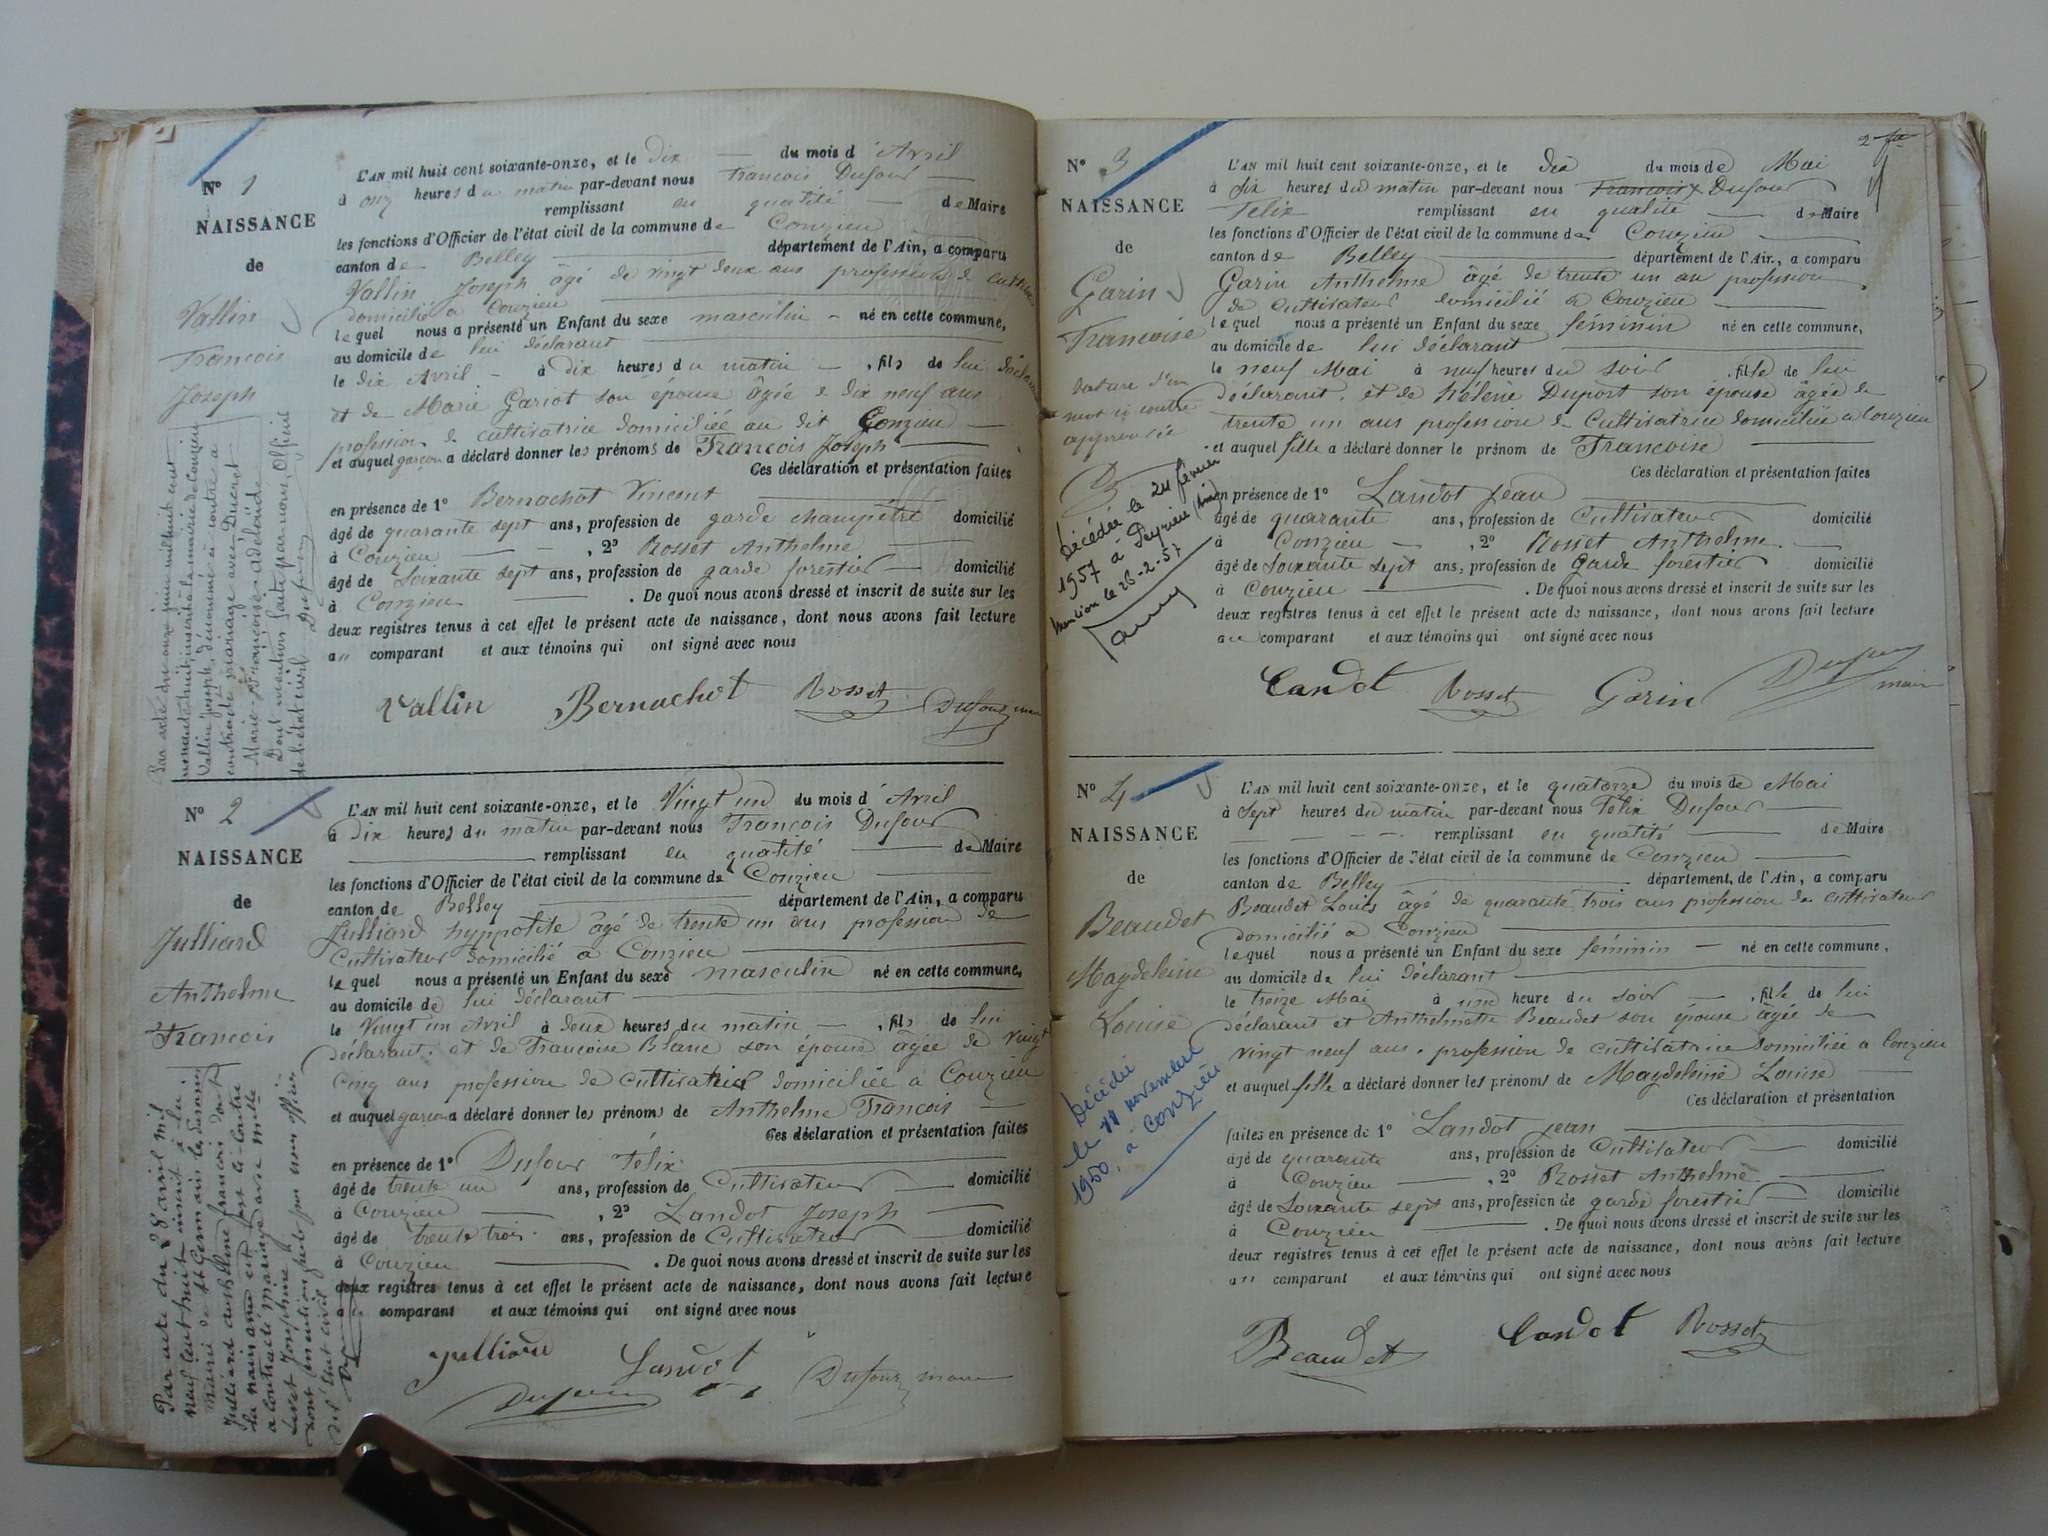 N° 1
NAISSANCE
de
Vallin
François
Joseph
L'AN mil huit cent soixante-onze, et le dix du mois d'Avril
à onze heures du matin par-devant nous François Dufour
remplissant en qualité de Maire
les fonctions d'Officier de l'état civil de la commune de Conzieu
canton de Belley département de l'Ain, a comparu
Vallin Joseph âgé de vingt deux ans profession de
domicilié à Conzieu
lequel nous a présenté un Enfant du sexe masculin né en cette commune,
au domicile de lui déclarant
le dix Avril à dix heures du matin, fils de lui déclarant
et de Marie Gariot son épouse âgée de dix neuf ans
profession de cultivatrice domiciliée au dit Conzieu
et auquel garçon a déclaré donner les prénoms de François Joseph
Ces déclaration et présentation faites
en présence de 1° Bernachot Vincent
âgé de quarante sept ans, profession de garde champêtre domicilié
à Conzieu, 2° Rosset Anthelme
âgé de Soixante sept ans, profession de garde forestier domicilié
à Conzieu. De quoi nous avons dressé et inscrit de suite sur les
deux registres tenus à cet effet le présent acte de naissance, dont nous avons fait lecture
au comparant et aux témoins qui ont signé avec nous
Vallin Bernachot Rosset Dufour maire
Par acte du onze juin mil huit cent
nonante huit, inscrit à la mairie de Conzieu
Vallin Joseph, dénommé ci contre a
contracté mariage avec Ducret
Marie-Françoise-Adélaïde
Dont mention faite par nous, Officier
de l'état civil Dufour
N° 2
NAISSANCE
de
Julliard
Anthelme
François
L'AN mil huit cent soixante-onze, et le Vingt un du mois d'Avril
à dix heures du matin par-devant nous François Dufour
remplissant en qualité de Maire
les fonctions d'Officier de l'état civil de la commune de Conzieu
canton de Belley département de l'Ain, a comparu
Julliard hyppolite âgé de trente un ans profession de
Cultivateur domicilié à Conzieu
lequel nous a présenté un Enfant du sexe masculin né en cette commune,
au domicile de lui déclarant
le Vingt un Avril à deux heures du matin, fils de lui
déclarant et de Françoise Blanc son épouse âgée de vingt
Cinq ans profession de cultivatrice domiciliée à Conzieu
et auquel garçon a déclaré donner les prénoms de Anthelme François
Ces déclaration et présentation faites
en présence de 1° Dufour Félix
âgé de trente un ans, profession de Cultivateur domicilié
à Conzieu, 2° Landot Joseph
âgé de trente trois ans, profession de Cultivateur domicilié
à Conzieu. De quoi nous avons dressé et inscrit de suite sur les
deux registres tenus à cet effet le présent acte de naissance, dont nous avons fait lecture
au comparant et aux témoins qui ont signé avec nous
Julliard Landot
Dufour Dufour maire
Par acte du 28 avril mil
neuf cent huit inscrit à la
mairie de St Germain les
Julliard anthelme françois dont
la naissance est ci contre
a contracté mariage avec Melle
Josephine
dont mention faite par nous officier
de l'état civil
2
N° 3
NAISSANCE
de
Garin
Françoise
rature d'un
mot ci contre
approuvée
Décédée le 24 février
1957 à Peyrieu (Ain)
Mention le 28-2-57
L'AN mil huit cent soixante-onze, et le dix du mois de Mai
à six heures du matin par-devant nous François Dufour
Felix remplissant en qualité de Maire
les fonctions d'Officier de l'état civil de la commune de Conzieu
canton de Belley département de l'Ain, a comparu
Garin Anthelme âgé de trente un an profession
de Cultivateur domicilié à Conzieu
lequel nous a présenté un Enfant du sexe féminin né en cette commune,
au domicile de lui déclarant
le neuf Mai à neuf heures du soir, fille de lui
déclarant, et de hélène Duport son épouse âgée de
trente un ans profession de Cultivatrice domiciliée a Conzieu
et auquel fille a déclaré donner le prénom de Françoise
Ces déclaration et présentation faites
en présence de 1° Landot Jean
âgé de quarante ans, profession de Cultivateur domicilié
à Conzieu, 2° Rosset Anthelme
âgé de Soixante sept ans, profession de Garde forestier domicilié
à Conzieu. De quoi nous avons dressé et inscrit de suite sur les
deux registres tenus à cet effet le présent acte de naissance, dont nous avons fait lecture
au comparant et aux témoins qui ont signé avec nous
Landot Rosset Garin Dufour maire
N° 4
NAISSANCE
de
Beaudet
Magdeleine
Louise
Décédée
le 11 novembre
1950, à Conzieu
L'AN mil huit cent soixante-onze, et le quatorze du mois de Mai
à sept heures du matin par-devant nous Félix Dufour
remplissant en qualité de Maire
les fonctions d'Officier de l'état civil de la commune de Conzieu
canton de Belley département, de l'Ain, a comparu
Beaudet Louis âgé de quarante trois ans profession de cultivateur
domicilié à Conzieu
lequel nous a présenté un Enfant du sexe féminin né en cette commune,
au domicile de lui déclarant
le treize Mai à une heure du soir, fille de lui
déclarant et Anthelmette Beaudet son épouse âgée de
vingt neuf ans profession de cultivatrice domiciliée a Conzieu
et auquel fille a déclaré donner les prénoms de Magdeleine Louise
Ces déclaration et présentation
faites en présence de 1° Landot jean
âgé de quarante ans, profession de Cultivateur domicilié
à Conzieu, 2° Rosset Anthelme
âgé de Soixante sept ans, profession de garde forestier domicilié
à Conzieu. De quoi nous avons dressé et inscrit de suite sur les
deux registres tenus à cet effet le présent acte de naissance, dont nous avons fait lecture
au comparant et aux témoins qui ont signé avec nous
Beaudet Landot Rosset